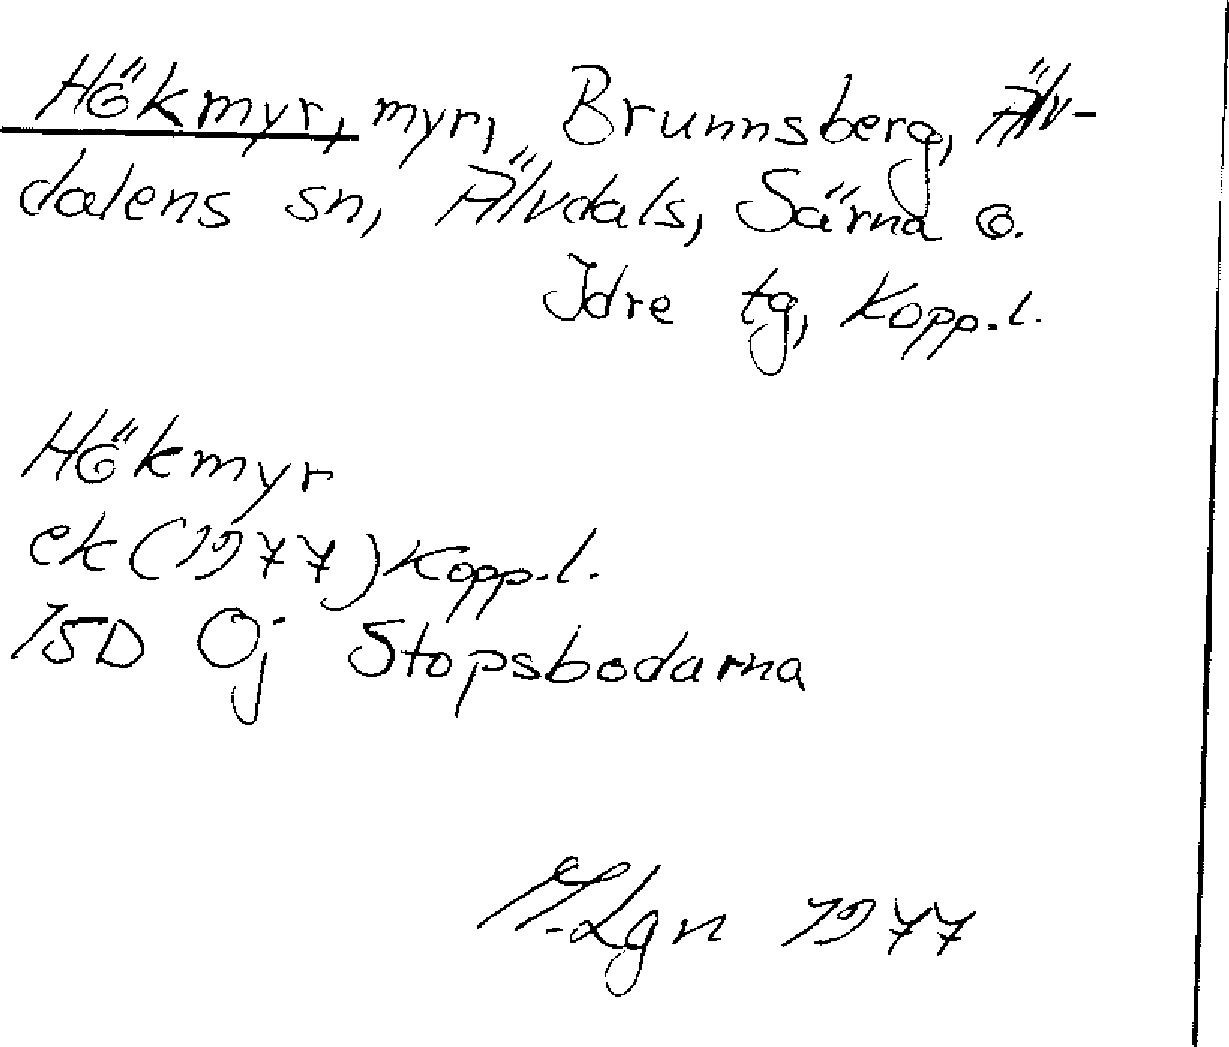 Hökmyr, myr, Brunnsberg, Älv-
dalens sn, Älvdals, Särna o.
Idre tg, Kopp.l.
Hökmyr
ek (1977) Kopp.l.
15D 0j Stopsbodarna
1977